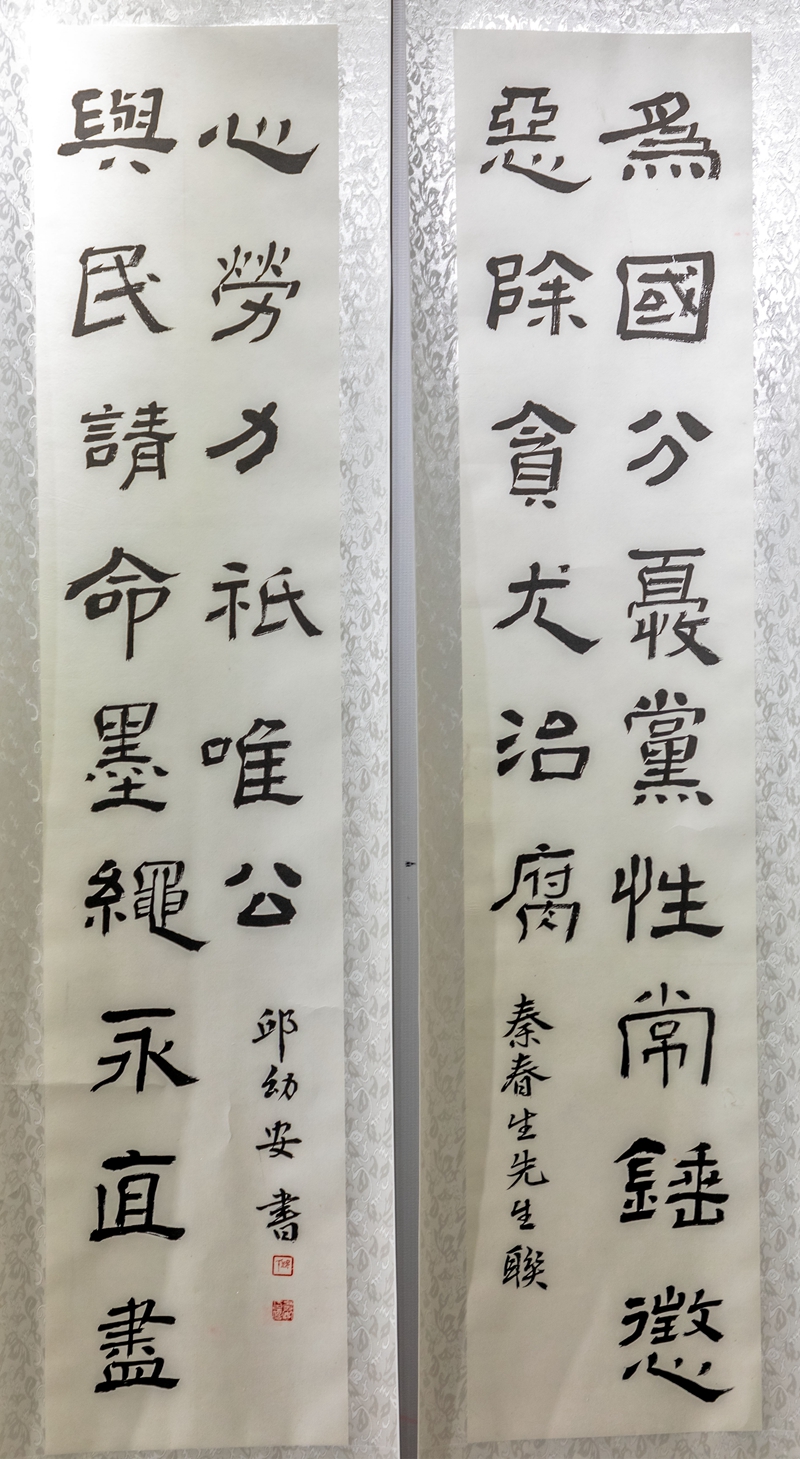 為國分憂黨性常錘懲
惡除貪尤治腐
秦春生先生聯
與民請命墨繩永直盡
心勞力祇唯公
邱幼安書